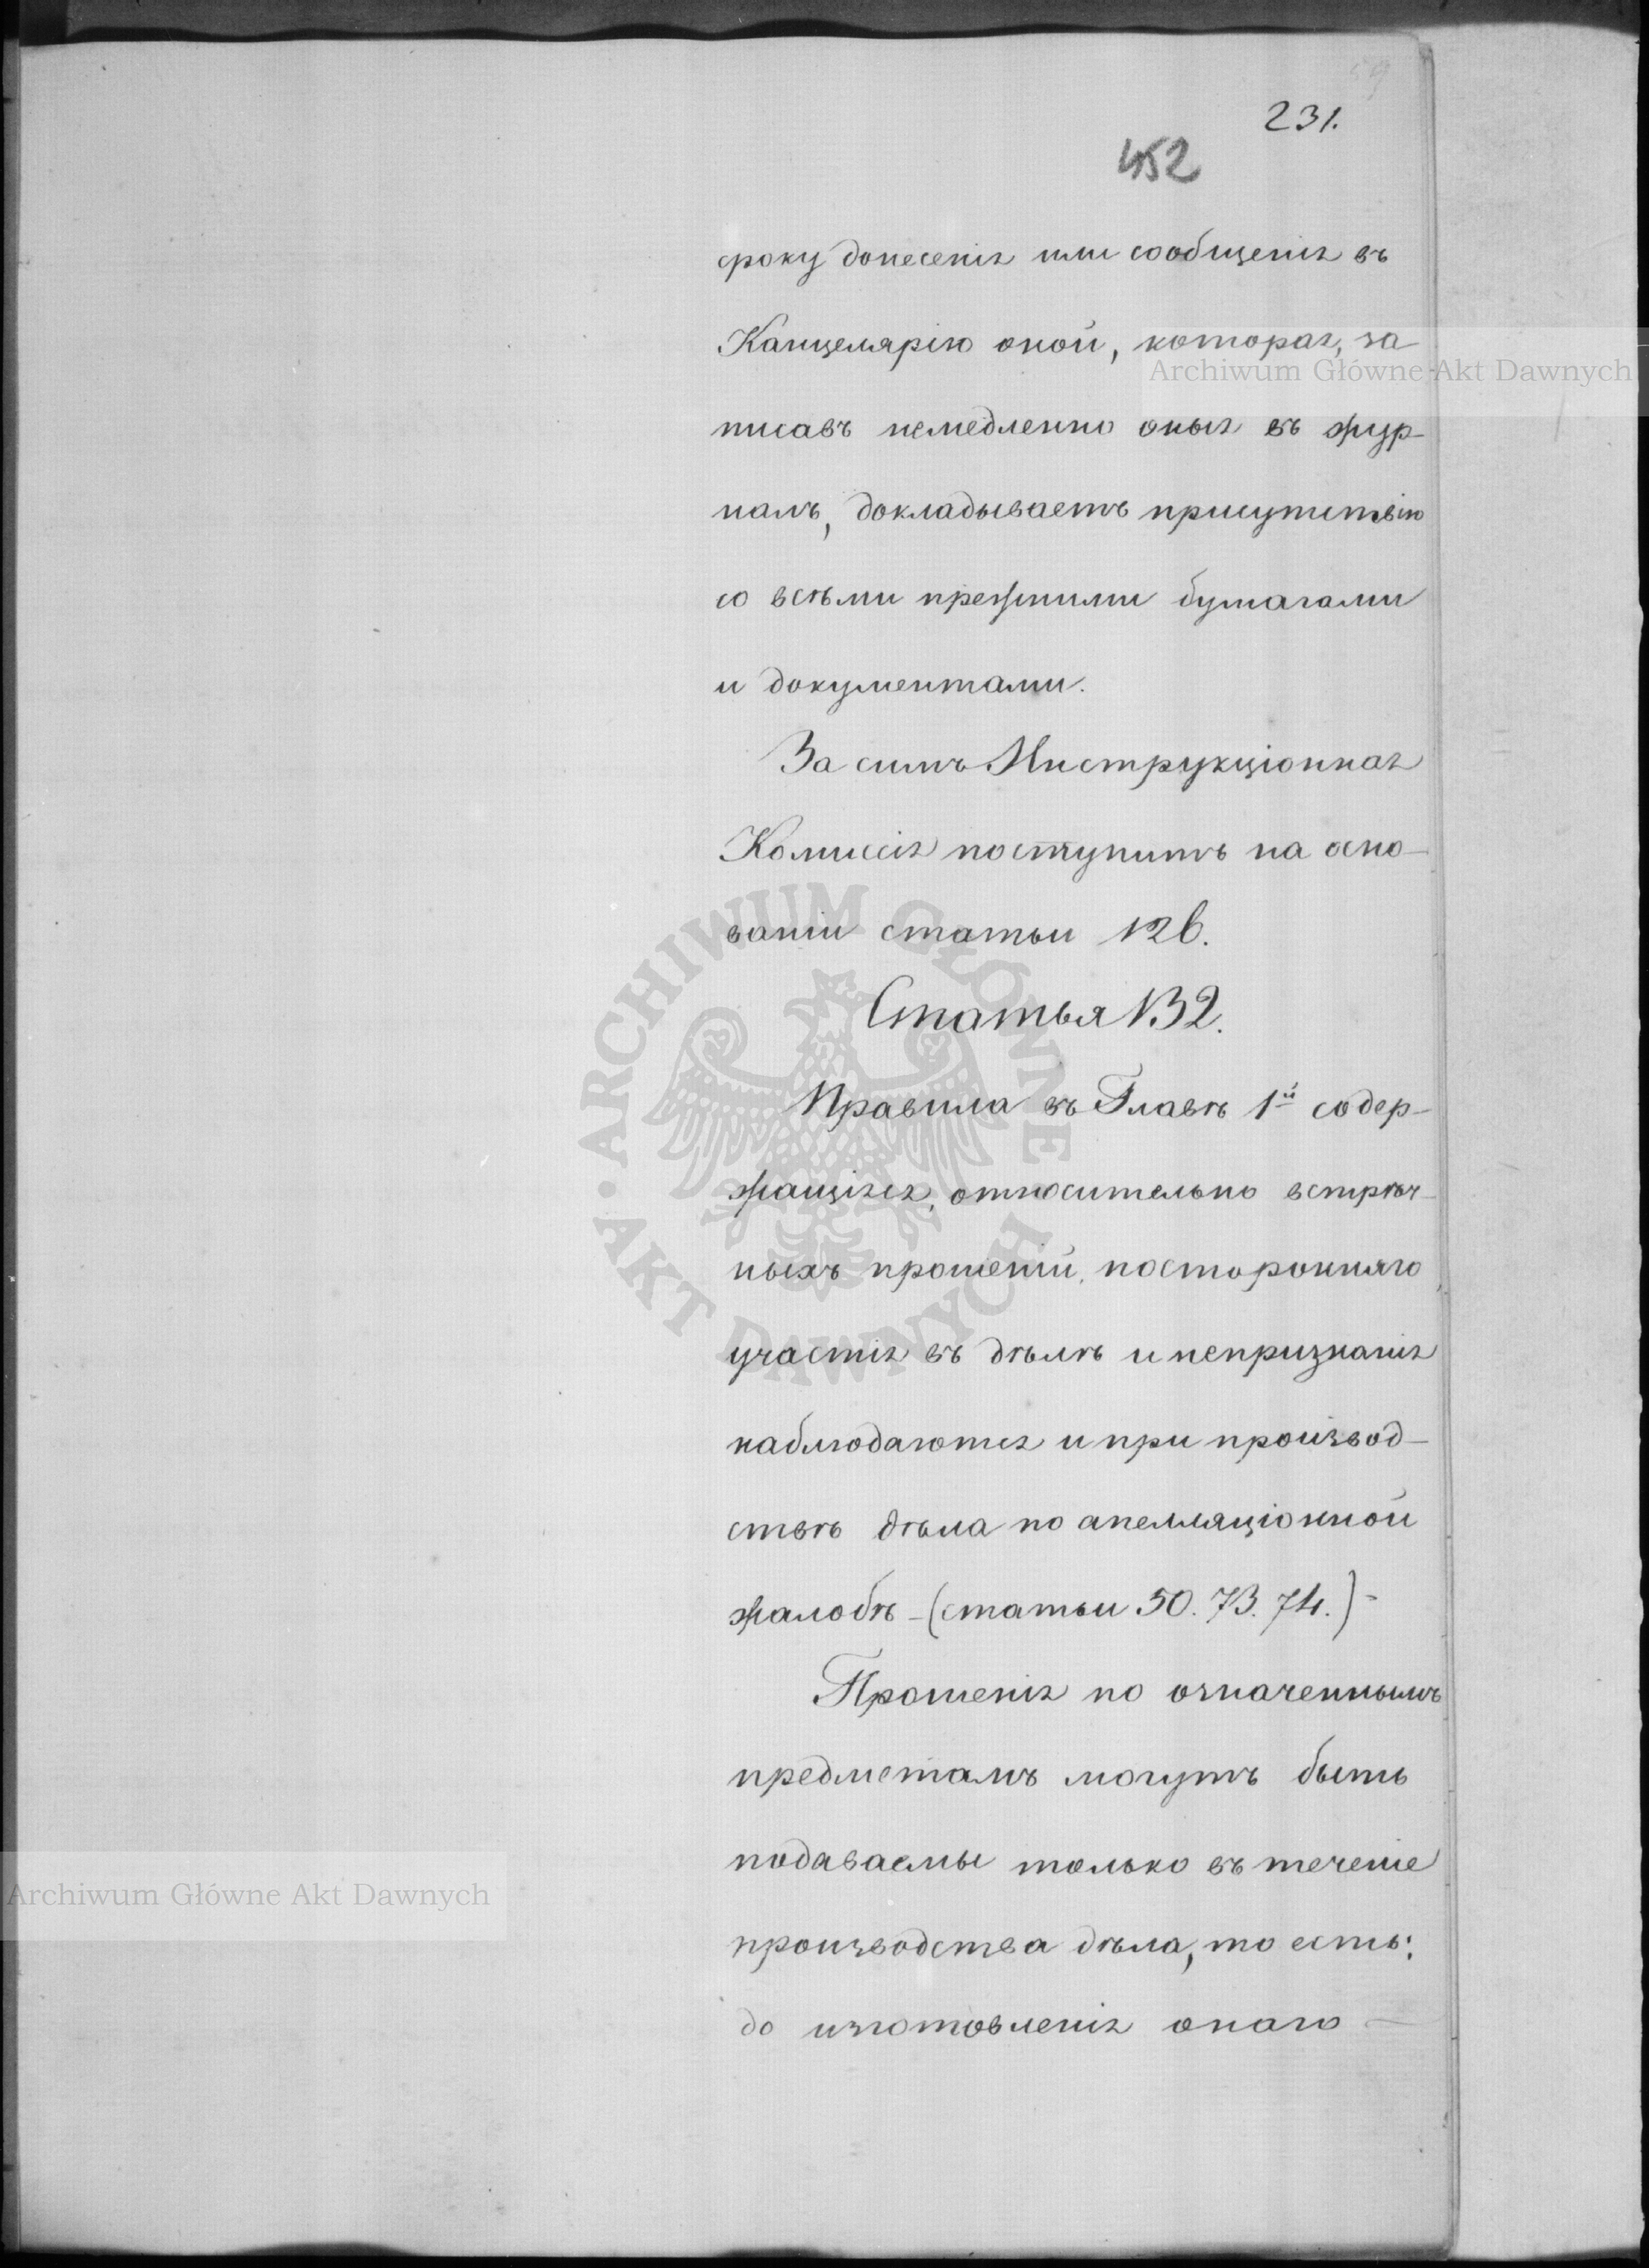 231.
452
сроку донесенія или сообщенія въ
Канцелярію оной, которая, за-
писавъ немедленно оныя въ жур-
налъ, докладываетъ присутствію
со всѣми прежними бумагами
и документами.
За симъ Инструкціонная
Комиссія поступитъ на осно-
ваніи статьи 126.
Статья 132.
Правила въ Главѣ 1й содер-
жащіяся, относительно встрѣч-
ныхъ прошеній, посторонняго
участія въ дѣлѣ и непризнанія
наблюдаются и при производ-
ствѣ дѣла по апелляціонной
жалобѣ - (статьи 50. 73. 74.) -
Прошенія по означеннымъ
предметамъ могутъ быть
подаваемы только въ теченіе
производства дѣла, то есть:
до изготовленія онаго —
Archiwum Główne Akt Dawnych
Archiwum Główne Akt Dawnych
ARCHIWUM GŁÓWNE · AKT DAWNYCH ·